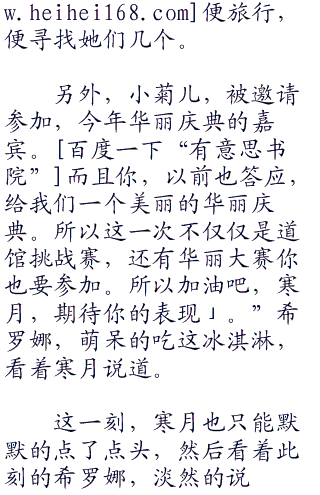 w.heihei168.com]便旅行，
便寻找她们几个。
另外，小菊儿，被邀请
参加，今年华丽庆典的嘉
宾。[百度一下“有意思书
院”]而且你，以前也答应，
给我们一个美丽的华丽庆
典。所以这一次不仅仅是道
馆挑战赛，还有华丽大赛你
也要参加。所以加油吧，寒
月，期待你的表现」。”希
罗娜，萌呆的吃这冰淇淋，
看着寒月说道。
这一刻，寒月也只能默
默的点了点头，然后看着此
刻的希罗娜，淡然的说